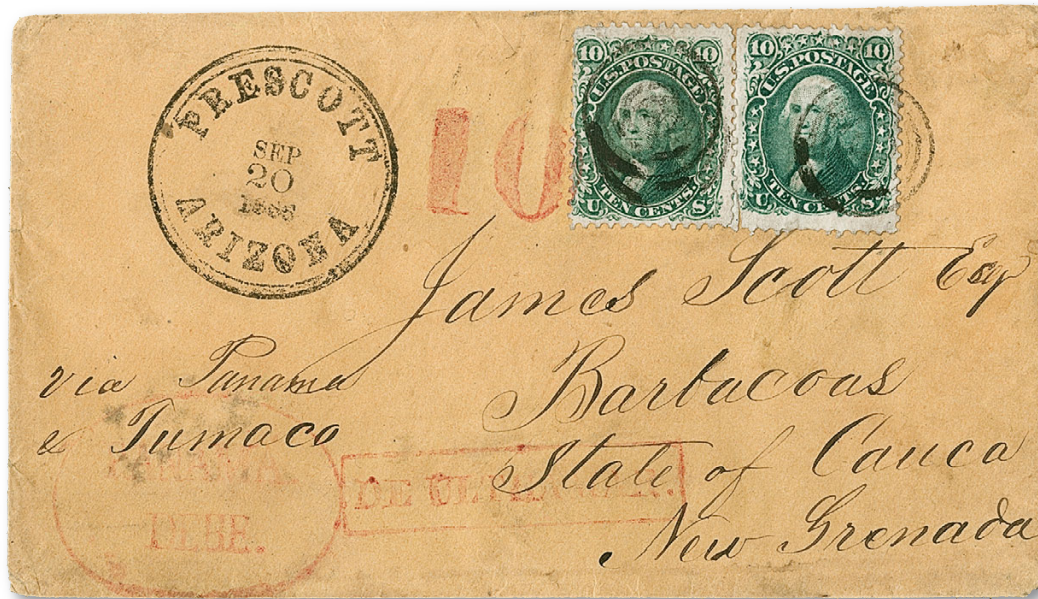 PRESCOTT
SEP
20
1866
ARIZONA
10
10 10
U.S. POSTAGE
TEN CENTS.
U S
10 10
U.S. POSTAGE
TEN CENTS.
U S
James Scott Esqr
Barbacoas
State of Cauca
New Grenada
via Panama
& Tumaco
PANAMA
DEBE.
DE ULTRAMAR.